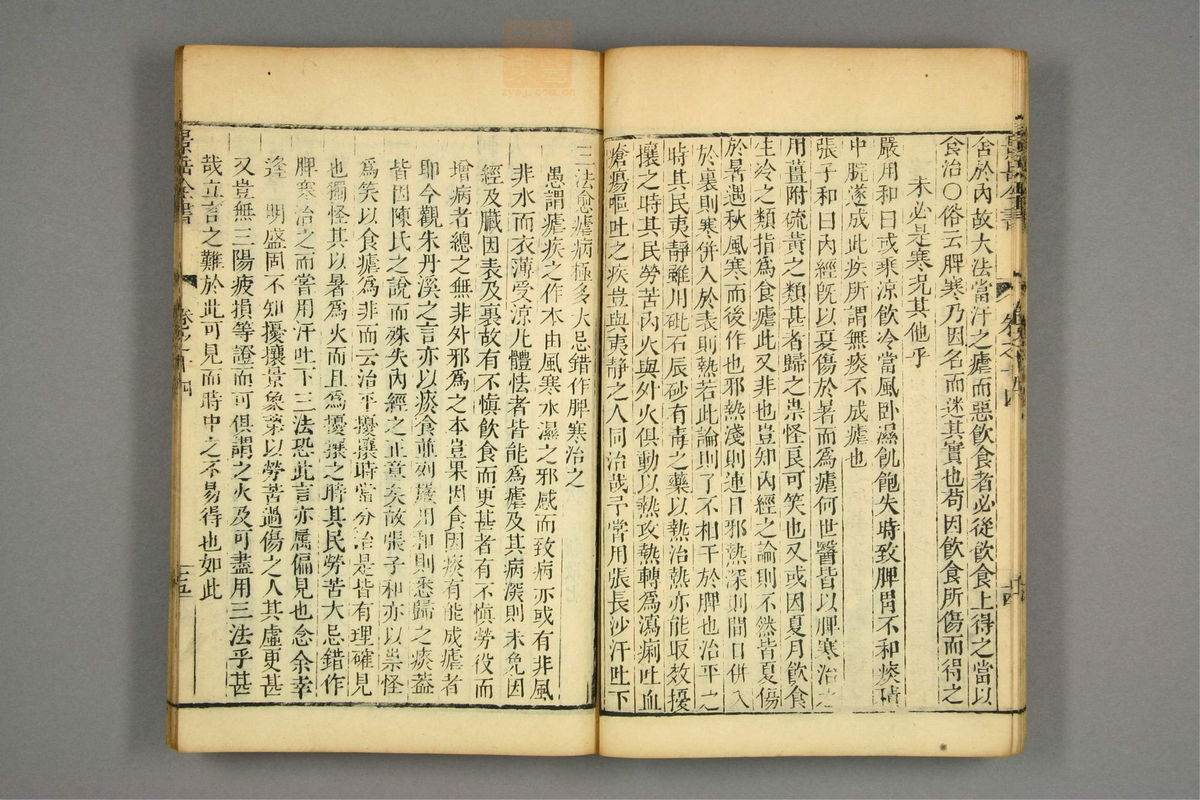 舍於內故大法當汗之瘧而惡飲食者必從飲食上得之當以
食治〇俗云脾寒乃因名而迷其實也苟因飲食所傷而得之
未必是寒况其他乎
嚴用和曰或乘涼飲冷當風卧濕飢飽失時致脾胃不和痰積
中脘遂成此疾所謂無痰不成瘧也
張子和曰內經旣以夏傷於暑而爲瘧何世醫皆以脾寒治之
用薑附硫黄之類甚者歸之祟怪良可笑也又或因夏月飲食
生冷之類指爲食瘧此又非也豈知內經之論則不然皆夏傷
於暑遇秋風寒而後作也邪熱淺則連日邪熱深則間日併入
於裏則寒併入於表則熱若此論則了不相干於脾也治平之
時其民夷靜雖用砒石辰砂有毒之藥以熱治熱亦能取效擾
攘之時其民勞苦內火與外火俱動以熱攻熱轉爲瀉痢吐血
瘡瘍嘔吐之疾豈與夷靜之人同治哉予嘗用張長沙汗吐下
三法愈瘧病極多大忌錯作脾寒治之
愚謂瘧疾之作本由風寒水濕之邪感而致病亦或有非風
非水而衣薄受涼凡體怯者皆能爲瘧及其病深則未免因
經及臟因表及裏故有不慎飲食而更甚者有不慎勞役而
增病者總之無非外邪爲之本豈果因食因痰有能成瘧者
耶今觀朱丹溪之言亦以痰食並列嚴用和則悉歸之痰蓋
皆因陳氏之說而殊失內經之正意矣故張子和亦以祟怪
爲笑以食瘧爲非而云治平擾攘時當分治是皆有理確見
也獨怪其以暑爲火而且爲擾攘之時其民勞苦大忌錯作
脾寒治之而嘗用汗吐下三法恐此言亦屬偏見也念余幸
逢 明盛固不知擾攘景象第以勞苦過傷之人其虛更甚
又豈無三陽疲損等證而可俱謂之火及可盡用三法乎甚
哉立言之難於此可見而時中之不易得也如此
景岳全書
卷之十四
十五